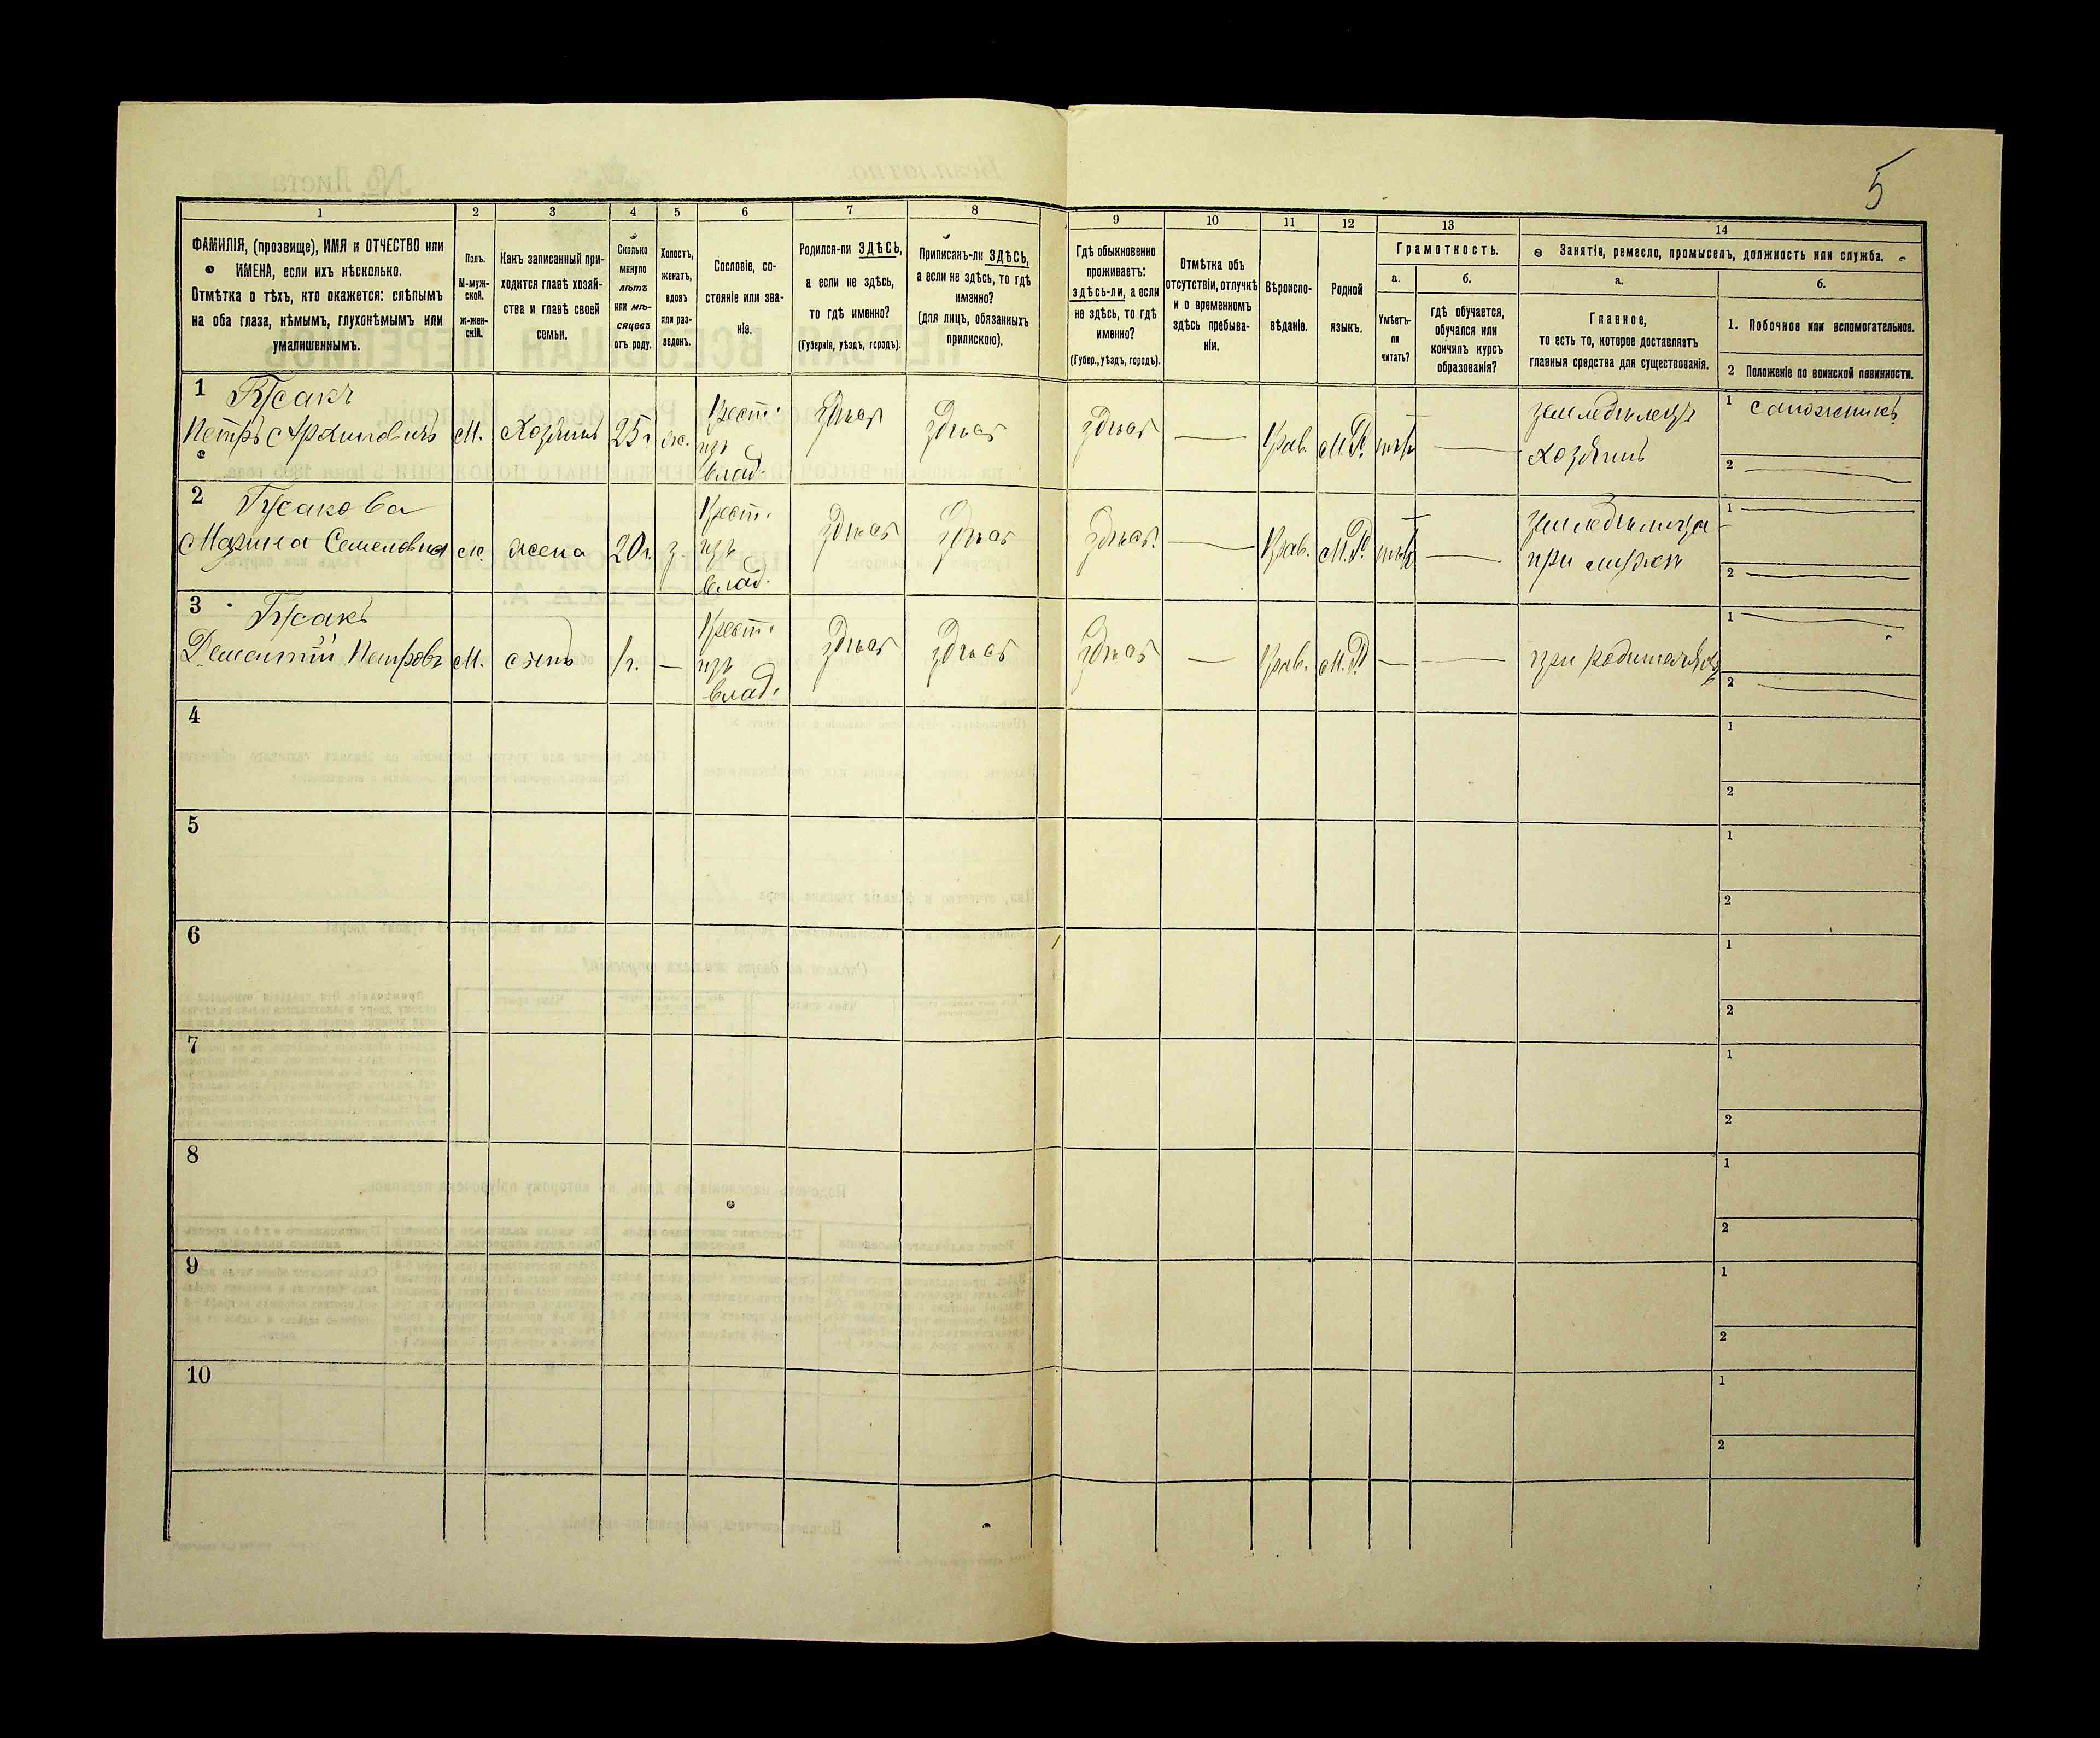 5
1 2 3 4 5 6 7 8 9 10 11 12 13 14
ФАМИЛІЯ, (прозвище), ИМЯ и ОТЧЕСТВО или
ИМЕНА, если ихъ нѣсколько.
Отмѣтка о тѣхъ, кто окажется: слѣпымъ
на оба глаза, нѣмымъ, глухонѣмымъ или
умалишеннымъ.
Полъ.
М-муж-
ской.
ж-жен-
скій.
Какъ записанный при-
ходится главѣ хозяй-
ства и главѣ своей
семьи.
Сколько
минуло
лѣтъ
или мѣ-
сяцевъ
отъ роду.
Холостъ,
женатъ,
вдовъ
или раз-
веденъ.
Сословіе, со-
стояніе или зва-
ніе.
Родился-ли ЗДѢСЬ,
а если не здѣсь,
то гдѣ именно?
(Губернія, уѣздъ, городъ).
Приписанъ-ли ЗДѢСЬ,
а если не здѣсь, то гдѣ
именно?
(для лицъ, обязанныхъ
припискою).
Гдѣ обыкновенно
проживаетъ:
здѣсь-ли, а если
не здѣсь, то гдѣ
именно?
(Губер., уѣздъ, городъ).
Отмѣтка объ
отсутствіи, отлучкѣ
и о временномъ
здѣсь пребыва-
ніи.
Вѣроиспо-
вѣданіе.
Родной
языкъ.
Грамотность.
а.
Умѣетъ-
ли
читать?
б.
гдѣ обучается,
обучался или
кончилъ курсъ
образованія?
Занятіе, ремесло, промыселъ, должность или служба.
а.
Главное,
то есть то, которое доставляетъ
главныя средства для существованія.
б.
1. Побочное или вспомогательное.
2 Положеніе по воинской повинности.
1 Гусакъ
Петръ Архиповичъ М. Хозяинъ 25 г. ж. Крест. изъ влад. здѣсь здѣсь здѣсь — Прав. М.Р. нѣтъ — земледѣлецъ хозяинъ 1 сапожникъ
2 —
2 Гусакова
Марина Семеновна ж. жена 20 г. з. Крест. изъ влад. здѣсь здѣсь здѣсь. — Прав. М.Р. нѣтъ — при мужѣ 1 —
2 —
3 Гусакъ
Дементій Петровъ М. сынъ 1 г. — Крест. изъ влад. здѣсь здѣсь здѣсь — Прав. М.Р. — — при родителяхъ 1 —
2 —
4 1
2
5 1
2
6 1
2
7 1
2
8 1
2
9 1
2
10 1
2